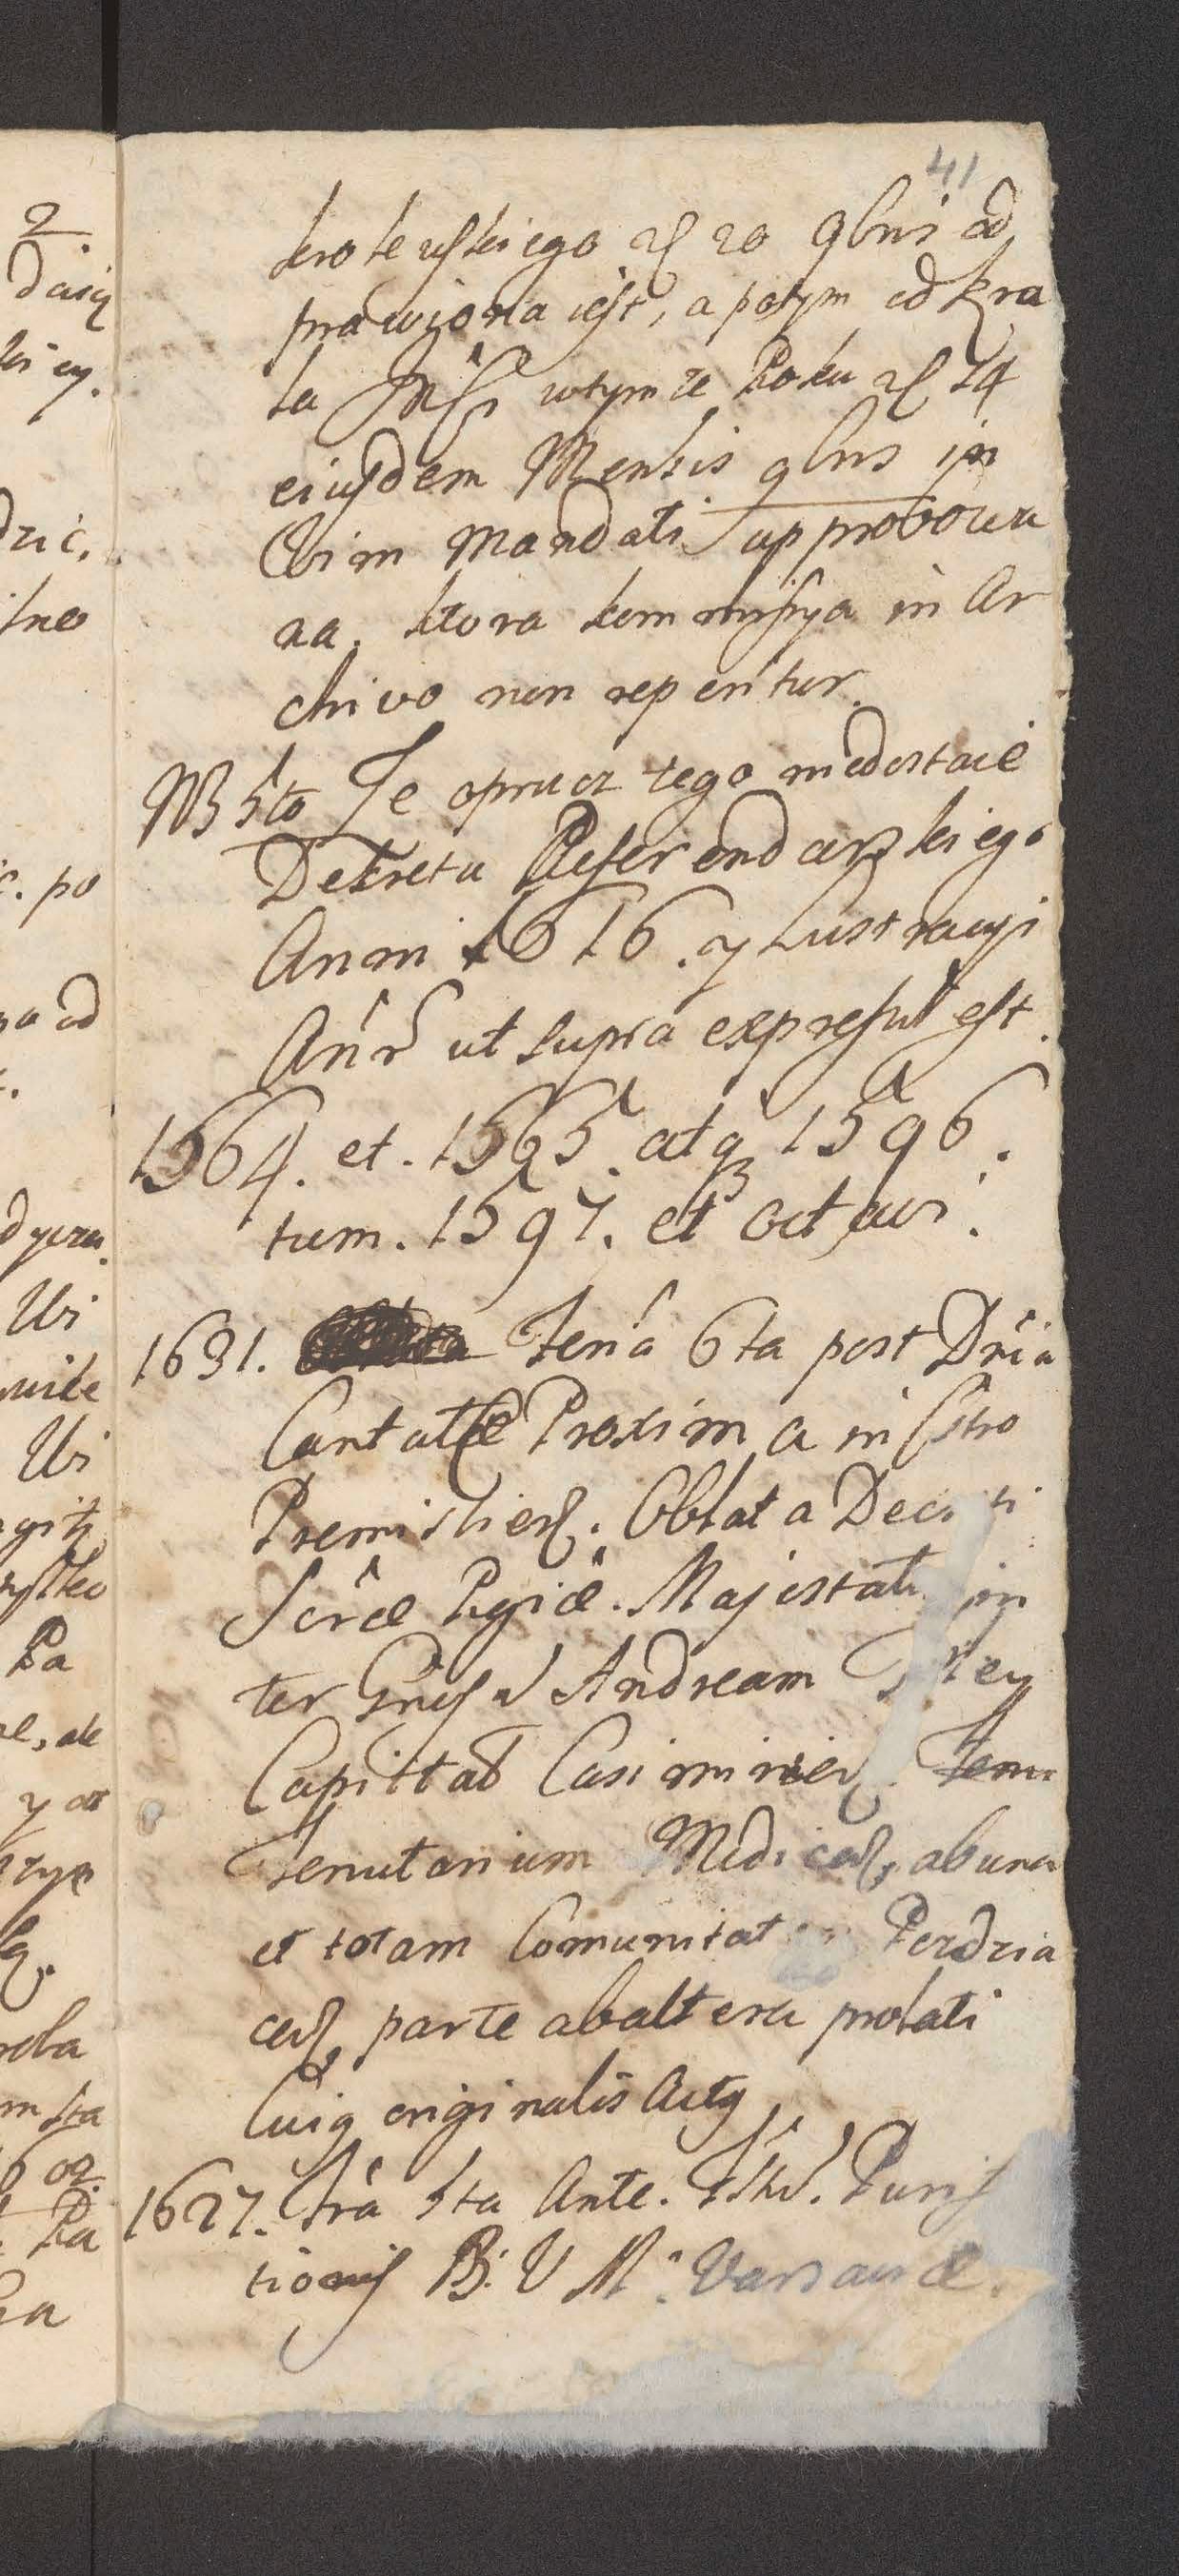 41
krolewskiego d. 20 9bris od
prawiona iest, a potym od Kro
la JMci wtymze Roku d. 24
eiusdem Mensis 9bris in
Vim Mandati approbowa
na. ktora kommissya in Ar
chivo non reperitur.
NB 5to Ze oprucz tego niedostaie
Dekretu Referendarskiego
Anni 1616. y Lustracyi
Annor ut supra expressũ est.
1564. et. 1565. atq3 1596.
tum. 1597. et octavi.
1631. Feria 6ta post Dnicã
Cantate Proxima in Cstro
Premislien. Oblata Decreti
Scræ Rgiæ. Majestatis in
ter Gnsũ Andream
Capittaẽ Casimirien. Tenu
Tenutarium Medicen, ab una
et totam Comunitatem Perdzia
cen, parte ab altera prolati
Cuig originalis Actg
1627. Fria 5ta Ante. Fstũ. Purif
tionis B: V M: Varsaviæ.
2
dzic.
. po
a od
Ubi
Ubi
Ra
y